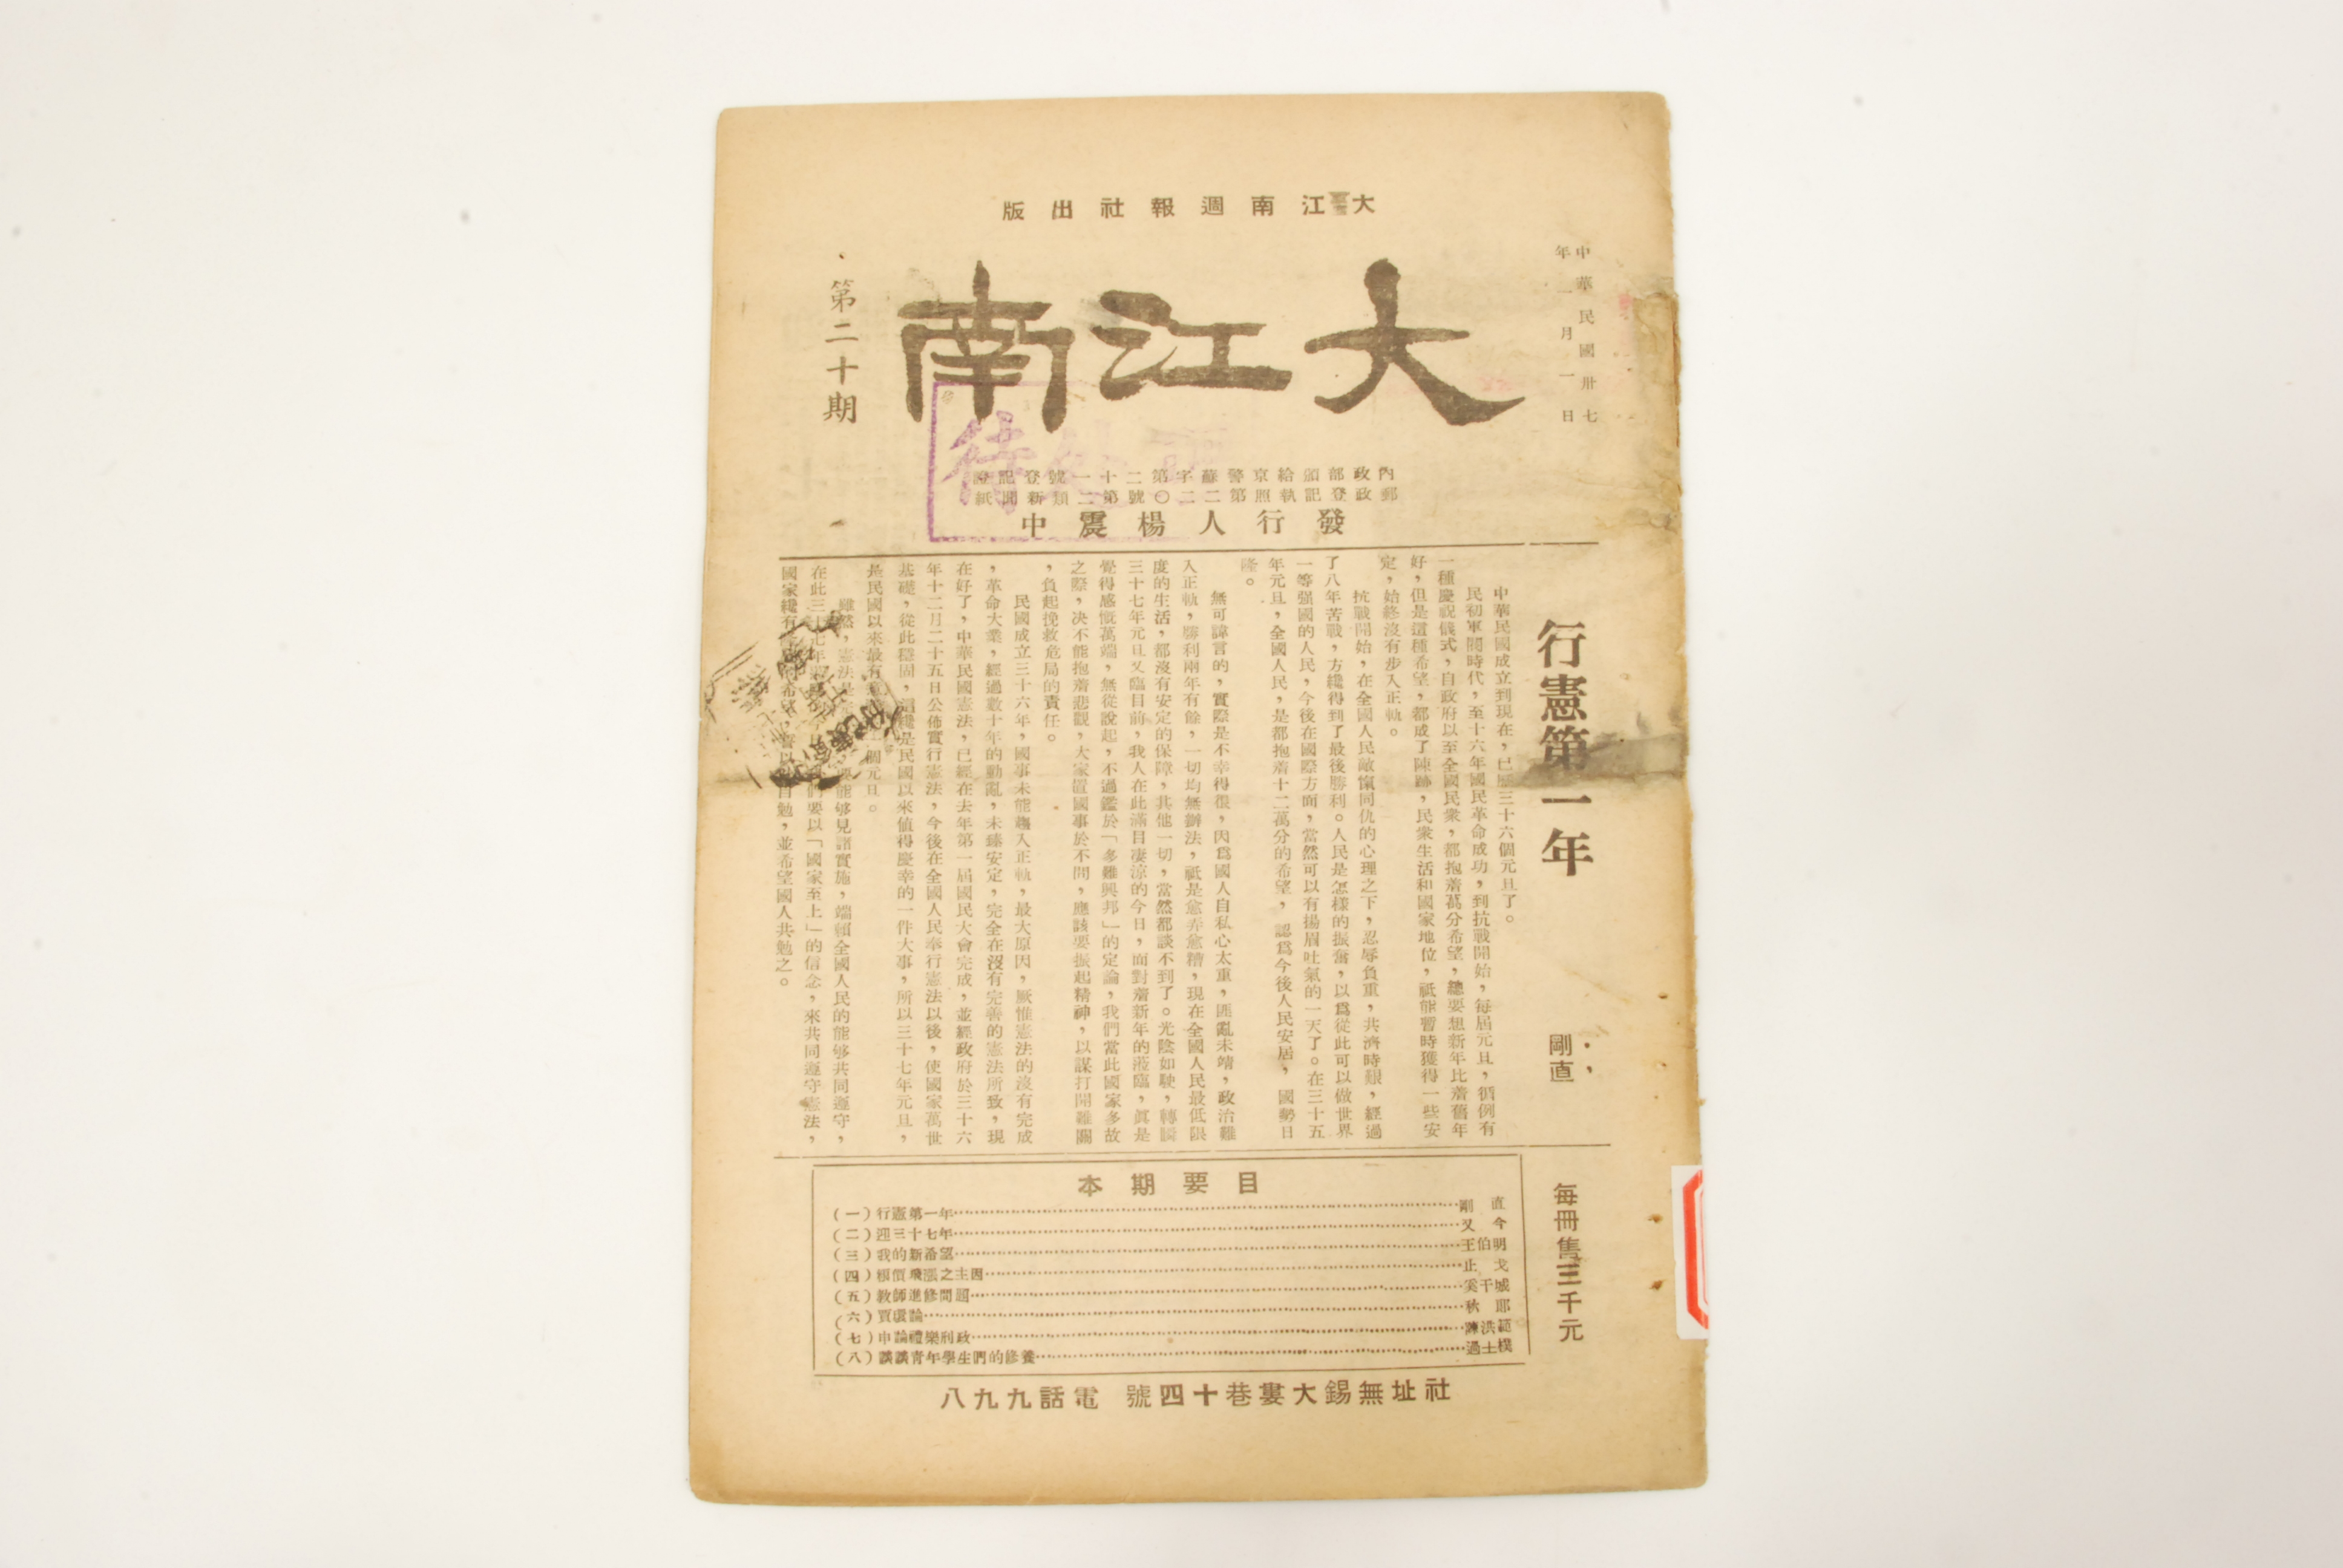 大江南週報社出版
中華民國卅七
年一月一日
大江南
第二十期
內政部頒給京警蘇字第二十一號登記證
郵政登記執照第二二〇號第二類新聞紙
發行人楊震中
行憲第一年
剛直
中華民國成立到現在,已歷三十六個元旦了。
民初軍閥時代,至十六年國民革命成功,到抗戰開始,每屆元旦,循例有
一種慶祝儀式,自政府以至全國民衆,都抱着萬分希望,總要想新年比舊年
好,但是這種希望,都成了陳跡,民衆生活和國家地位,祇能暫時獲得一些安
定,始終沒有步入正軌。
抗戰開始,在全國人民敵愾同仇的心理之下,忍辱負重,共濟時艱,經過
了八年苦戰,方纔得到了最後勝利。人民是怎樣的振奮,以爲從此可以做世界
一等强國的人民,今後在國際方面,當然可以有揚眉吐氣的一天了。在三十五
年元旦,全國人民,是都抱着十二萬分的希望,認爲今後人民安居,國勢日
隆。
無可諱言的,實際是不幸得很,因爲國人自私心太重,匪亂未靖,政治難
入正軌,勝利兩年有餘,一切均無辦法,祇是愈弄愈糟,現在全國人民最低限
度的生活,都沒有安定的保障,其他一切,當然都談不到了。光陰如駛,轉瞬
三十七年元旦又臨目前,我人在此滿目凄涼的今日,面對着新年的蒞臨,眞是
覺得感慨萬端,無從說起,不過鑑於「多難興邦」的定論,我們當此國家多故
之際,决不能抱着悲觀,大家置國事於不問,應該要振起精神,以謀打開難關
,負起挽救危局的責任。
民國成立三十六年,國事未能趨入正軌,最大原因,厥惟憲法的沒有完成
,革命大業,經過數十年的動亂,未臻安定,完全在沒有完善的憲法所致,現
在好了,中華民國憲法,已經在去年第一屆國民大會完成,並經政府於三十六
年十二月二十五日公佈實行憲法,今後在全國人民奉行憲法以後,使國家萬世
基礎,從此穩固,這纔是民國以來值得慶幸的一件大事,所以三十七年元旦,
是民國以來最有意個元旦。
雖然,憲法是能够見諸實施,端賴全國人民的能够共同遵守,
在此三年們要以「國家至上」的信念,來共同遵守憲法,
國家纔有希望,以自勉,並希望國人共勉之。
每冊售三千元
本期要目
(一)行憲第一年 剛直
(二)迎三十七年 又今
(三)我的新希望 王伯明
(四)物價飛漲之主因 止戈
(五)教師進修問題 奚干城
(六)賈虞論 秋耶
(七)申論禮樂刑政 陳洪範
(八)談談青年學生們的修養 過士樸
社址無錫大婁巷十四號 電話九九八